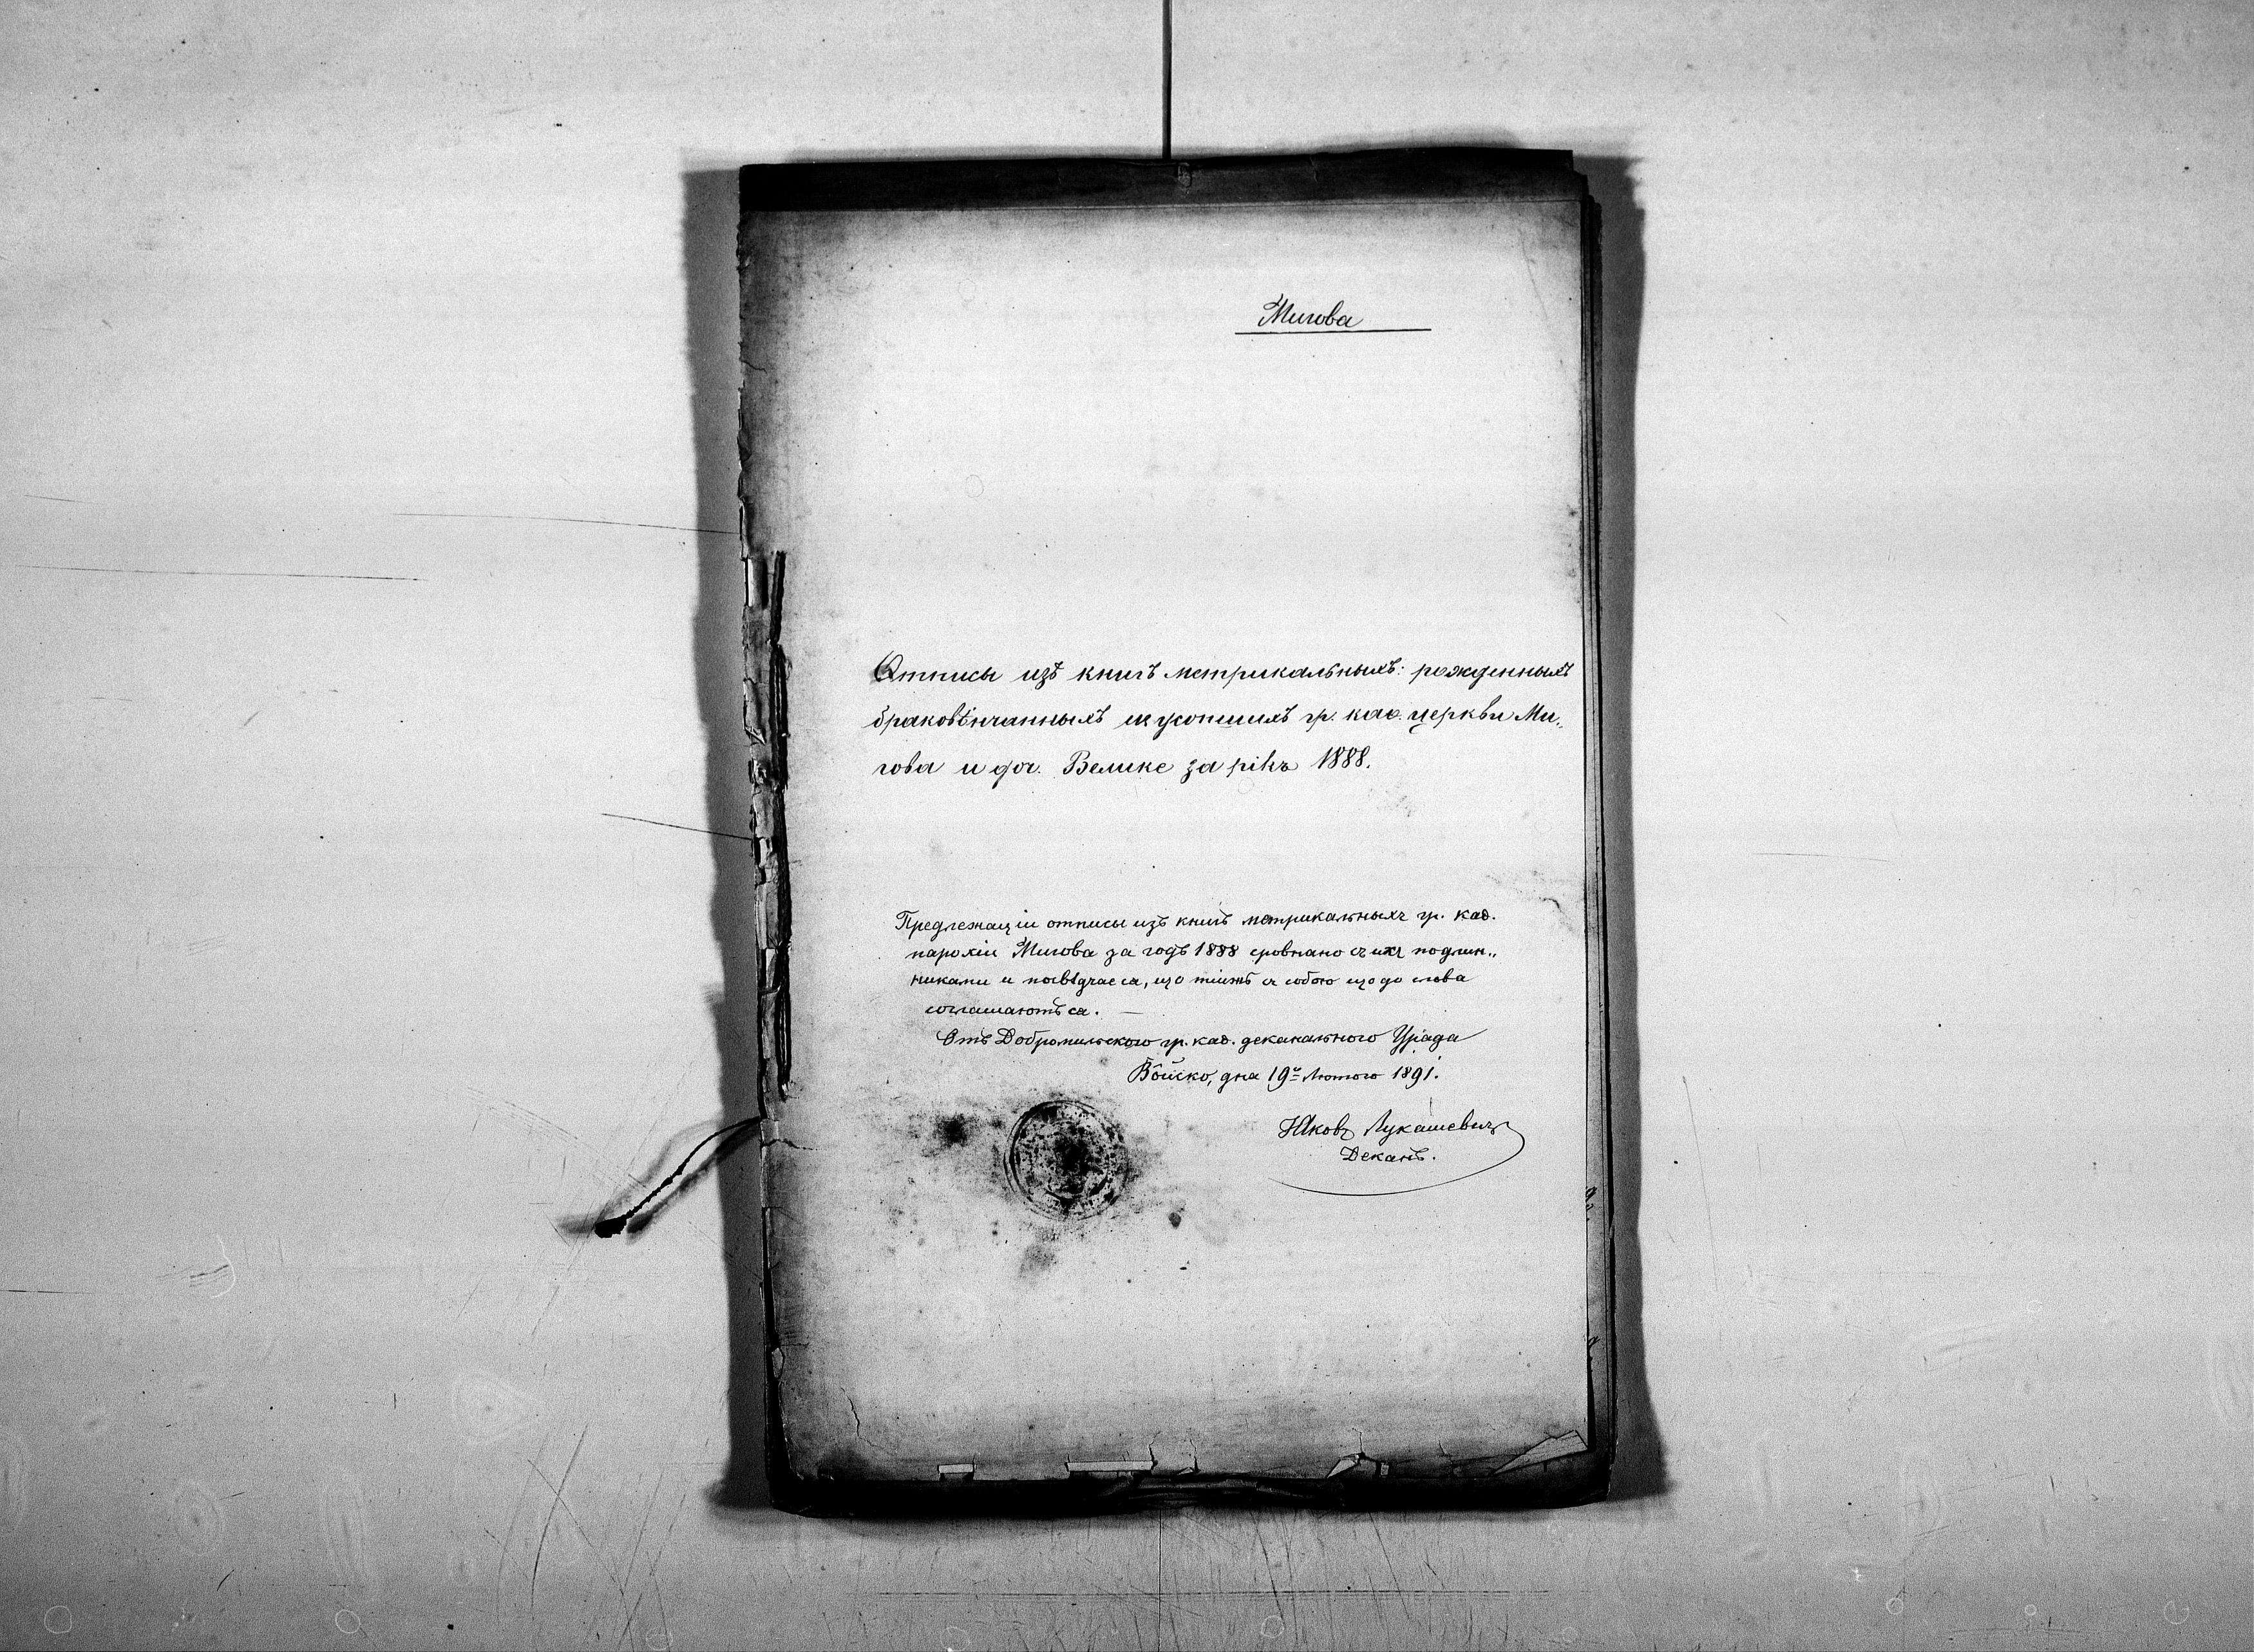 Мигова
Отписы изъ книгъ метрикальныхъ: рожденныхъ
браковѣнчанныхъ и усопшихъ гр. каѳ. церкви Ми„
гова и фи. Велике за рікъ 1888.
Предлежащіи отписы изъ книгъ метрикальныхъ гр. каѳ.
парохіи Мигова за годъ 1888 сровнано съ ихъ подлин„
никами и посвѣдчаеся, що тіижъ съ собою що до слова
соглашаютъся. —
Отъ Добромильского гр. каѳ. деканального Уряда
Вôйско, дня 19го Лютого 1891.
Яковъ Лукашевичъ
Деканъ.